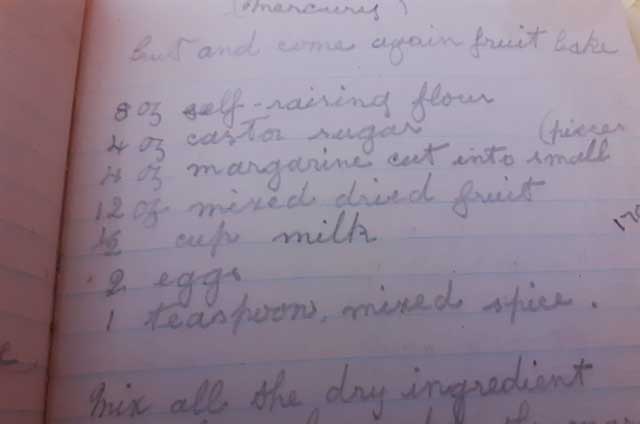 (Mercury)
Cut and come again fruit Cake
8 oz self-raising flour
4 oz castor sugar
4 oz margarine cut into small (pieces
12 oz mixed dried fruit
½ cup milk
2 eggs
1 teaspoon, mixed spice.
Mix all the dry ingredient